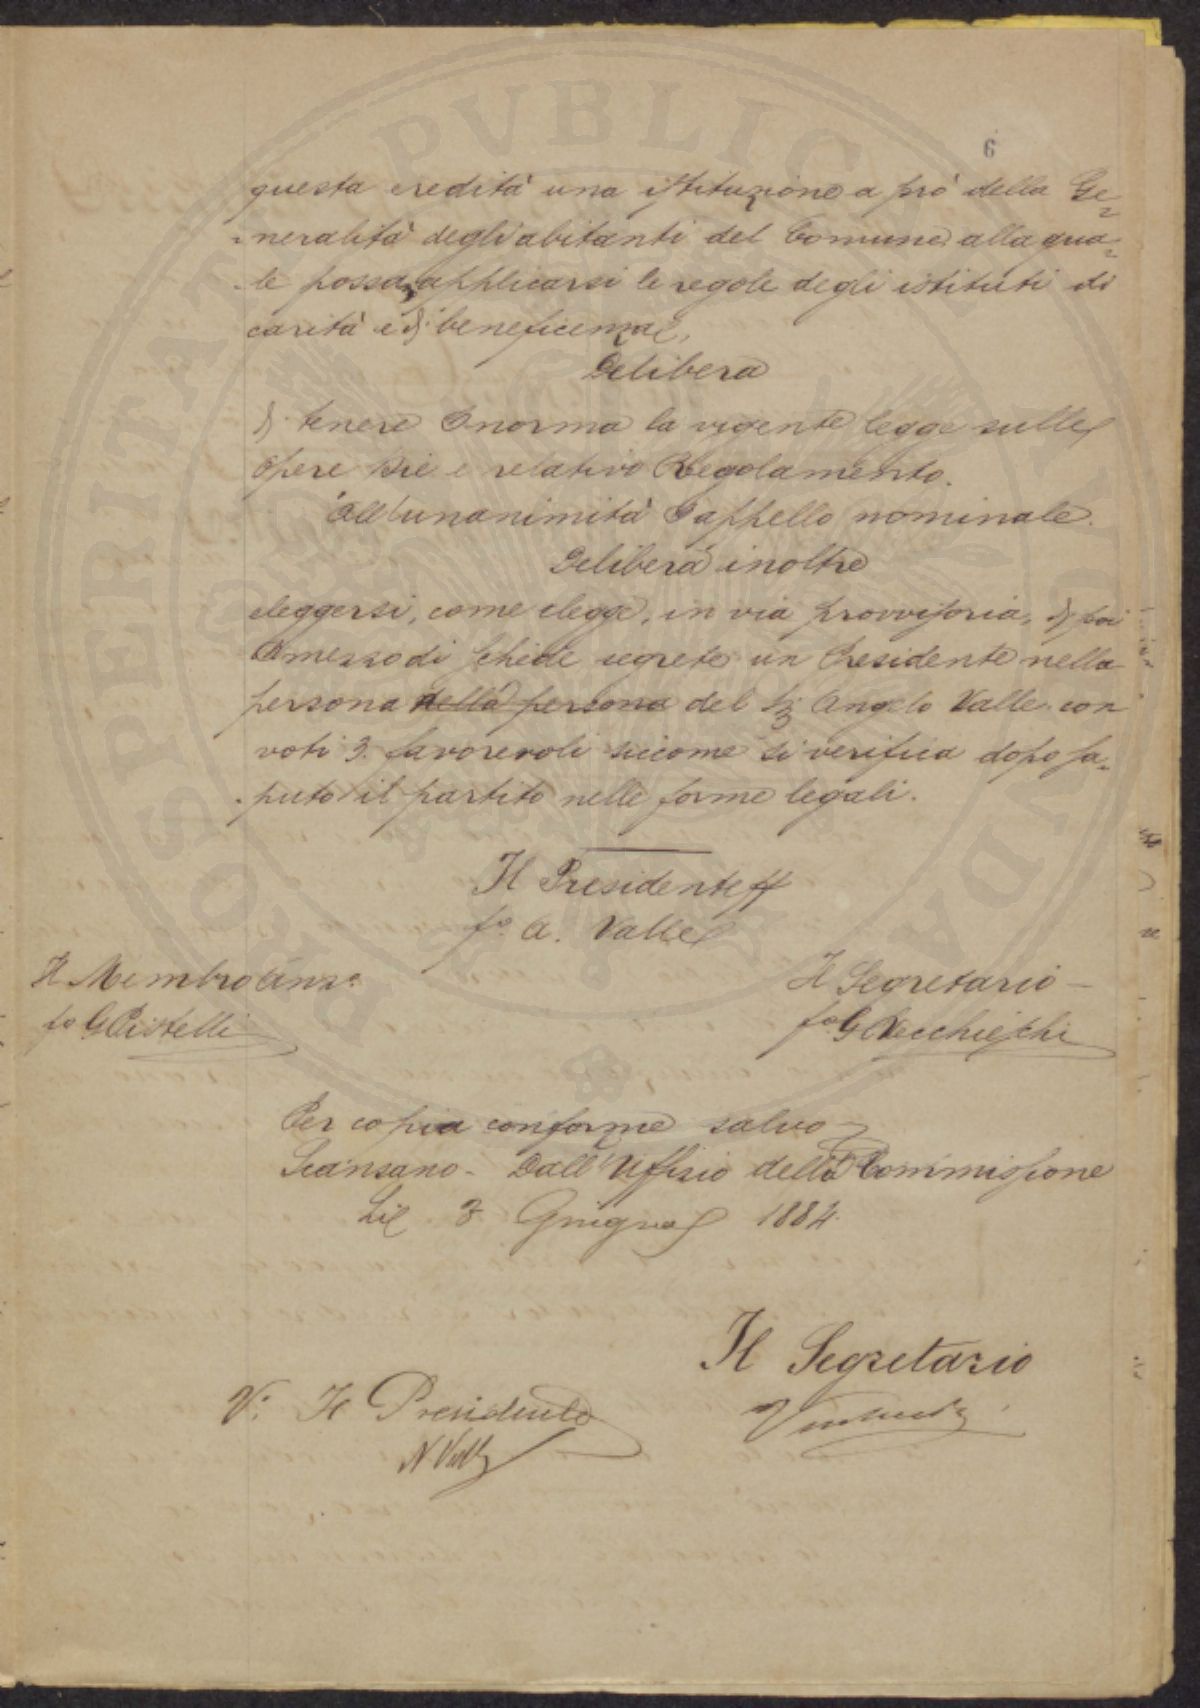 6
questa eredità una istituzione a prò della Ge=
=neralità degli abitanti del Comune alla qua=
=le possa applicarsi le regole degli istituti di
carità e di beneficenza,
Delibera
di tenere a norma la vigente legge sulle
Opere Pie e relativo Regolamento.
All'unanimità d'appello nominale.
Delibera inoltre
eleggersi, come elegge, in via provvisoria, di poi
a mezzo di schede segrete un Presidente nella
persona nella persona del Sig Angelo Valle con
voti 3. favorevoli siccome si verifica dopo sa=
=puto il partito nelle forme legali.
Il Presidente ff
fo. A. Valle
Il Membro Anzo. Il Segretario
fo G Pistelli fo G Vecchieschi
Per copia conforme salvo
Scansano - Dall'Uffizio della Commissione
Li 3 Giugno 1884.
Il Segretario
V. Il Presidente
PROSPERITATI PVBLICAE